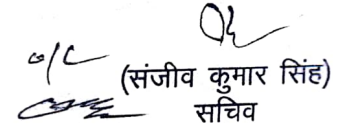 o/c
(संजीव कुमार सिंह)
सचिव